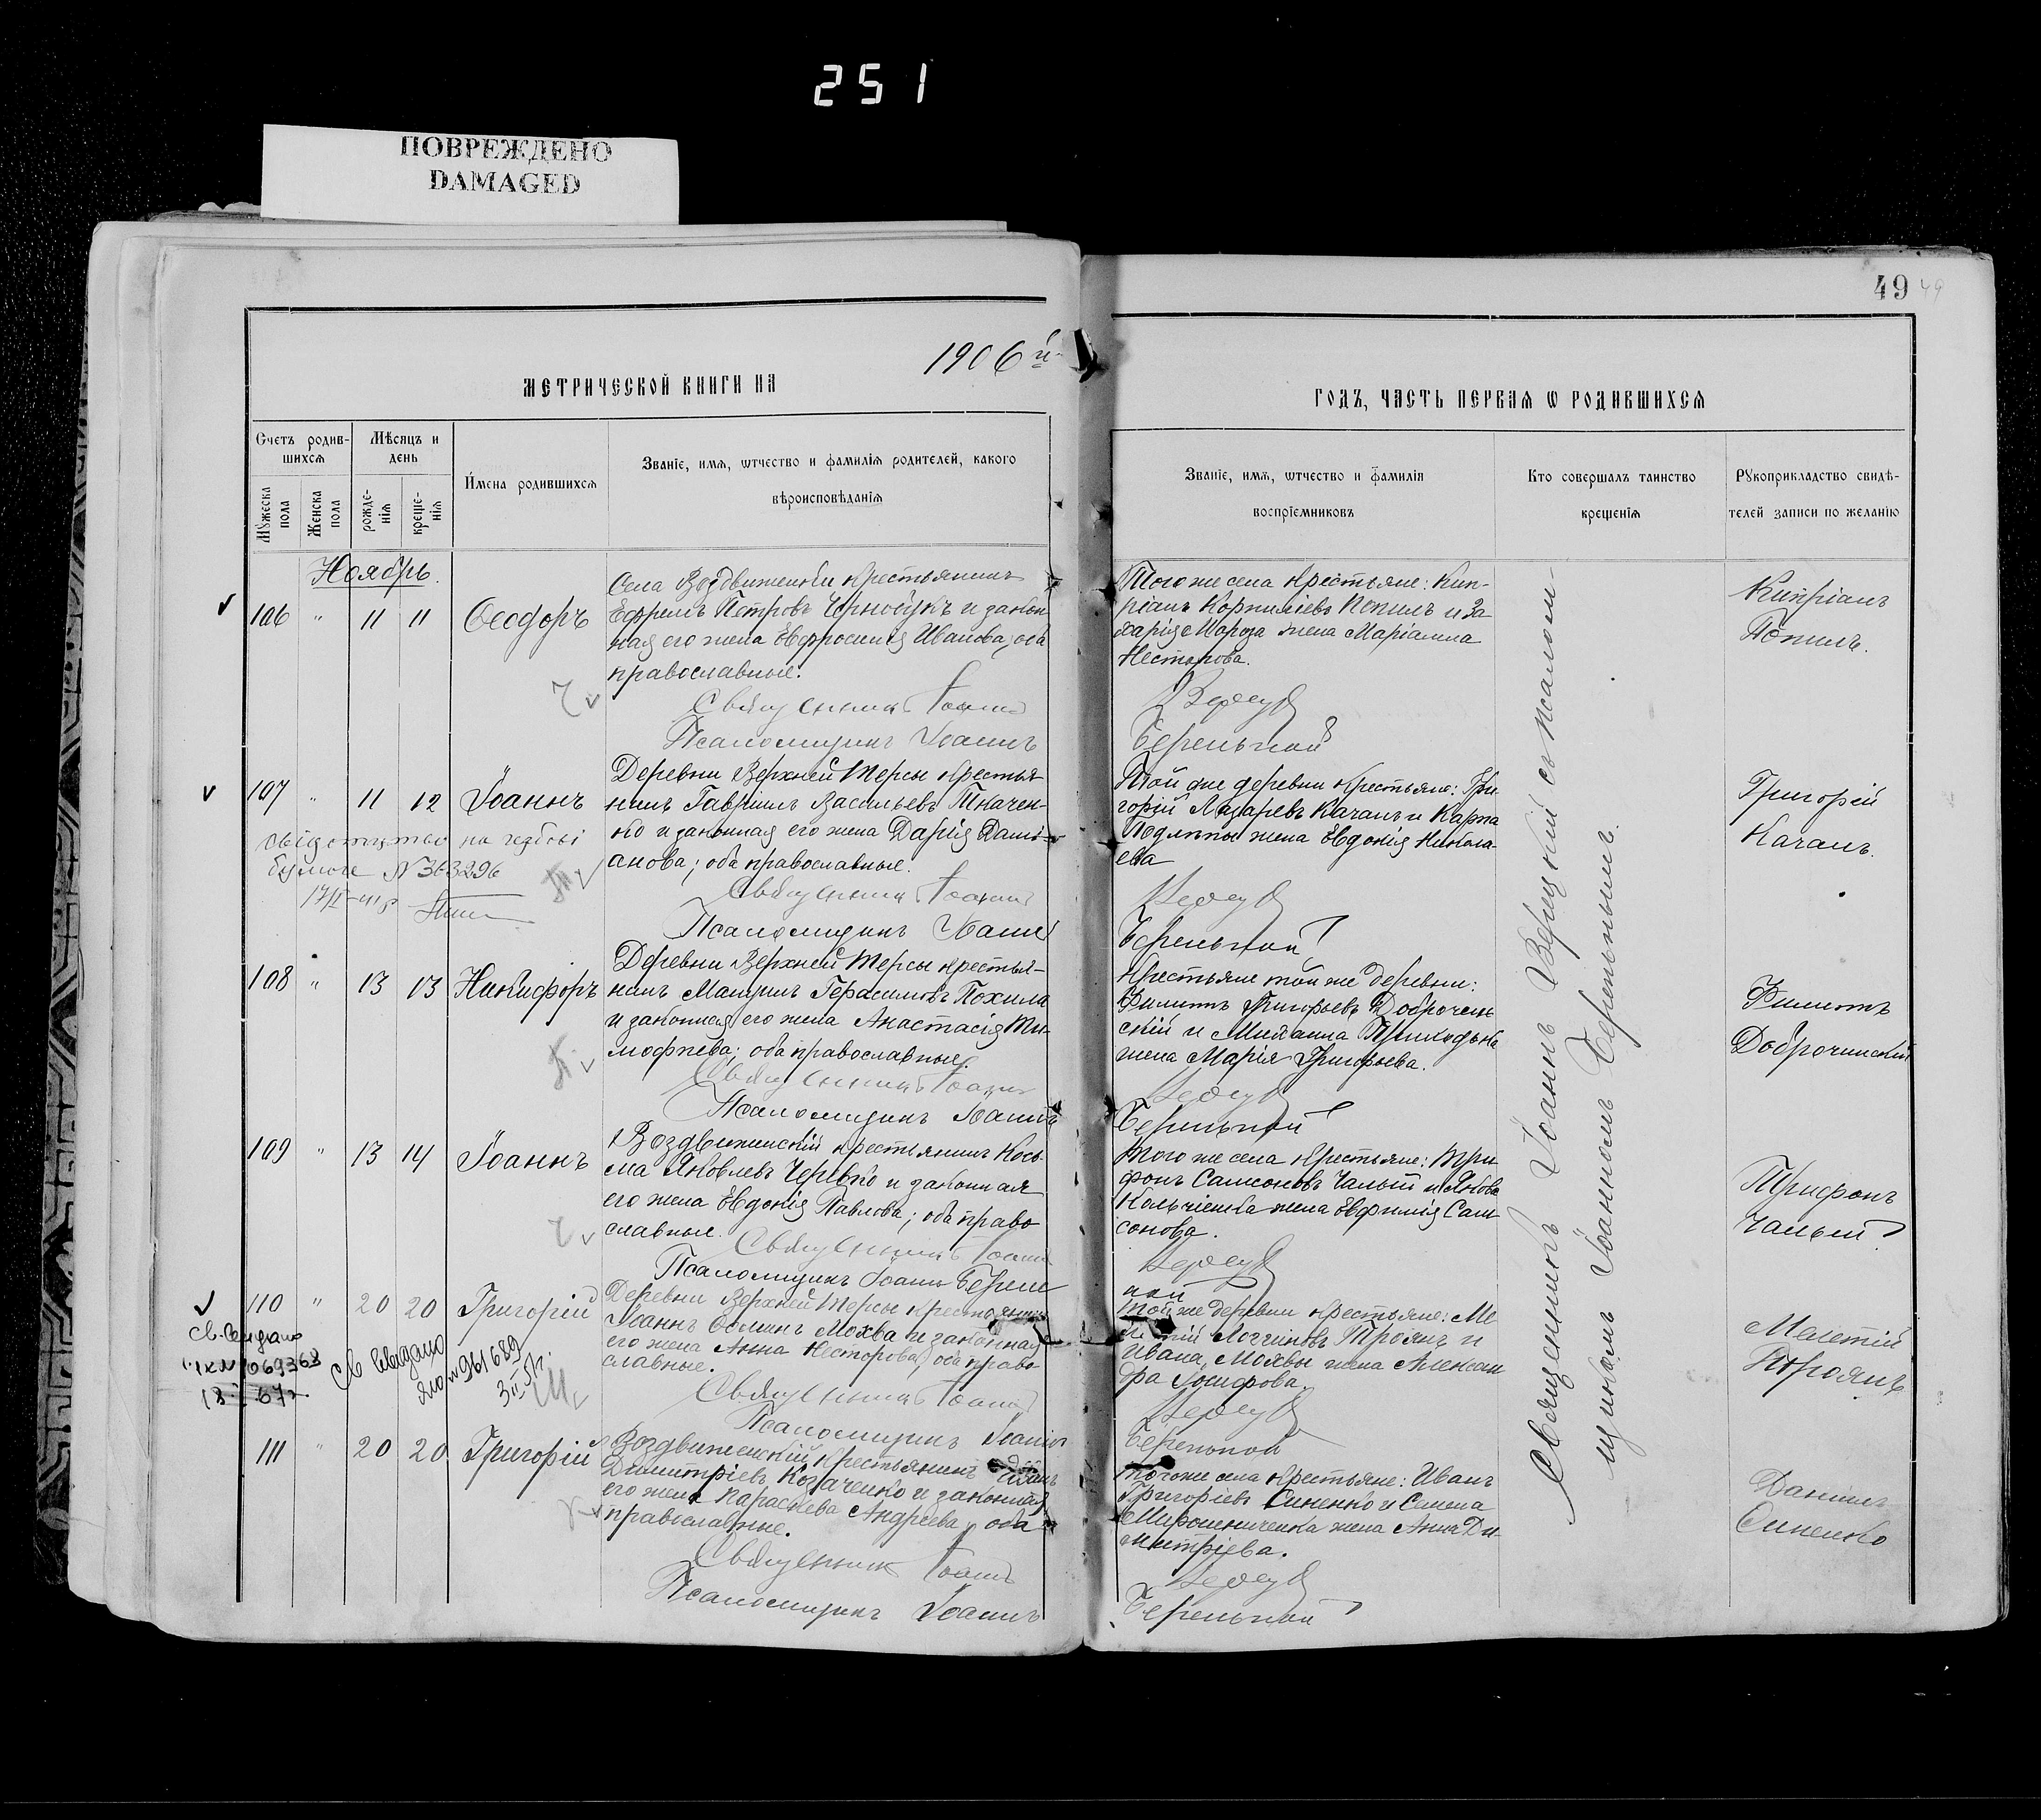 251
ПОВРЕЖДЕНО
DAMAGED
49 49
1906 й
МЕТРИЧЕСКОЙ КНИГИ НА
ГОДЪ, ЧАСТЬ ПЕРВАЯ Ѡ РОДИВШИХСЯ
Счетъ родив-
шихся
Мѣсяцъ и
день
Имена родившихся
Званїе, имя, ѡтчество и фамилія родителей, какого
вѣроисповѣданія
Мꙋжеска
пола
Женска
пола
рожде-
нія
креще-
нія
Званїе, имя, ѡтчество и фамилія
воспрїемниковъ
Кто совершалъ таинство
крещенїя
Рꙋкоприкладство свидѣ-
телей записи по желанїю
Ноябрь.
106 " 11 11 Ѳеодоръ
Села Воздвиженки крестьянинъ
Ефремъ Петровъ и закон
ная его жена Евфросинія Иванова, оба
православные.
Священникъ Іоаннъ
Псаломщикъ Іоаннъ
Того же села крестьяне: Кип-
ріанъ Корниліевъ Попилъ и За
харія Мороза жена Маріамна
Нестерова.
Верецкій
Берельной
Кипріанъ
Попилъ.
107 " 11 12 Іоаннъ
Деревни Верхней Терсы крестья-
нинъ Гавріилъ Васильевъ Ткачен-
ко и законная его жена Дарія Дамі-
анова; оба православные.
Священникъ Іоаннъ
Псаломщикъ Іоаннъ
бумоге N 363296
Той же деревни крестьяне: Гри-
горій Лазаревъ Качанъ и Карпа
жена Евдокія Никола-
ева
Верецкій
Берельной
Григорій
Качанъ.
108 " 13 13 Никифоръ
Деревни Верхней Терсы крестья-
нинъ Герасимовъ Похила
и законная его жена Анастасія Ти-
мофѣева; оба православные.
Священникъ Іоаннъ
Псаломщикъ Іоаннъ
Крестьяне той же деревни:
Филиппъ Григорьевъ Доброчин
скій и Михаила Приходька
жена Марія Григорьева.
Верецкій
Берельной
Филиппъ
Доброчинскій
109 " 13 14 Іоаннъ
Воздвиженскій крестьянинъ Кось-
ма Яковлевъ Черевко и законная
его жена Евдокія Павлова; оба право
славные.
Священникъ Іоаннъ
Псаломщикъ Іоаннъ Берель
Того же села крестьяне: Три
фонъ Самсоновъ Чалый и Якова
жена Евфимія Сам
сонова.
Верецкій
ной
Трифонъ
Чалый
110 " 20 20 Григорій
Деревни Верхней Терсы крестьянинъ
Іоаннъ Ѳоминъ Мохва и законная
его жена Анна Несторова, оба право
славные.
Священникъ Іоаннъ
Псаломщикъ Іоаннъ
069368
961689
Той же деревни крестьяне: Ме
летій Троянъ и
Ивана Мохвы жена Алексан
дра Іосифова.
Верецкій
Берельной
Мелетій
Троянъ
111 " 20 20 Григорій
Воздвиженскій крестьянинъ
Димитріевъ Козаченко и законная
его жена Параскева Андреева, оба
православные.
Священникъ Іоаннъ
Псаломщикъ Іоаннъ
Того же села крестьяне: Иванъ
Григоріевъ Синенко и Семена
Мирошниченка жена Анна Ди-
митріева.
Верецкій
Берельной
Даніилъ
Синенко
Священникъ Іоаннъ Верецкій съ псалом-
щикомъ Іоанномъ Берельнымъ.